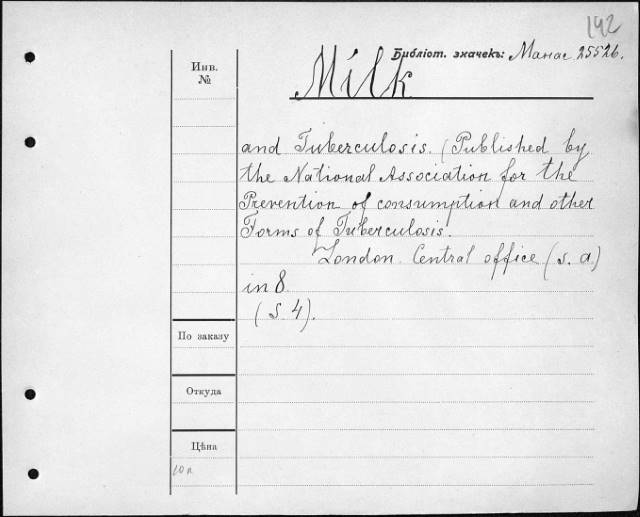 142
Библіот. значекъ: Манас 25526.
Инв.
№
Milk
and Tuberculosis. (Published by
the National Association for the
Prevention of consumption and other
Forms of Tuberculosis.
London. Central office (s. a.)
in 8
(S. 4).
По заказу
Откуда
Цѣна
10 к